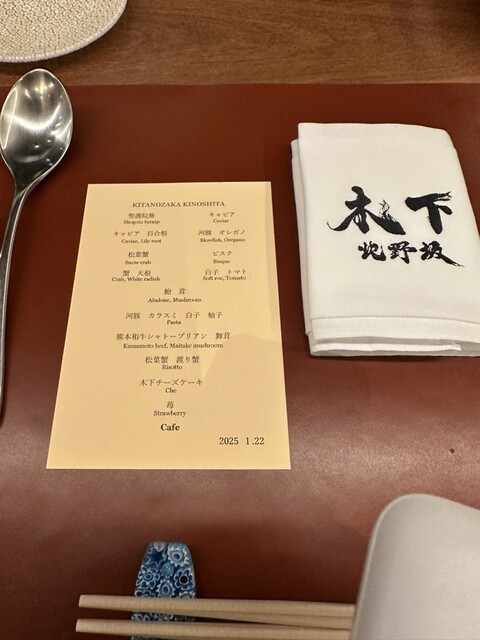 KITANOZAKA KINOSHITA
聖護院蕪
Shogoin turnip
キャビア
Caviar
キャビア 百合根
Caviar, Lily root
河豚 オレガノ
Blowfish, Oregano
松葉蟹
Snow crab
ビスク
Bisque
蟹 大根
Crab, White radish
白子 トマト
Soft roe, Tomato
鮑 茸
Abalone, Mushroom
河豚 カラスミ 白子 柚子
Pasta
熊本和牛シャトーブリアン 舞茸
Kumamoto beef, Maitake mushroom
松葉蟹 渡り蟹
Risotto
木下チーズケーキ
Che
苺
Strawberry
Cafe
2025 1.22
木下
北野坂